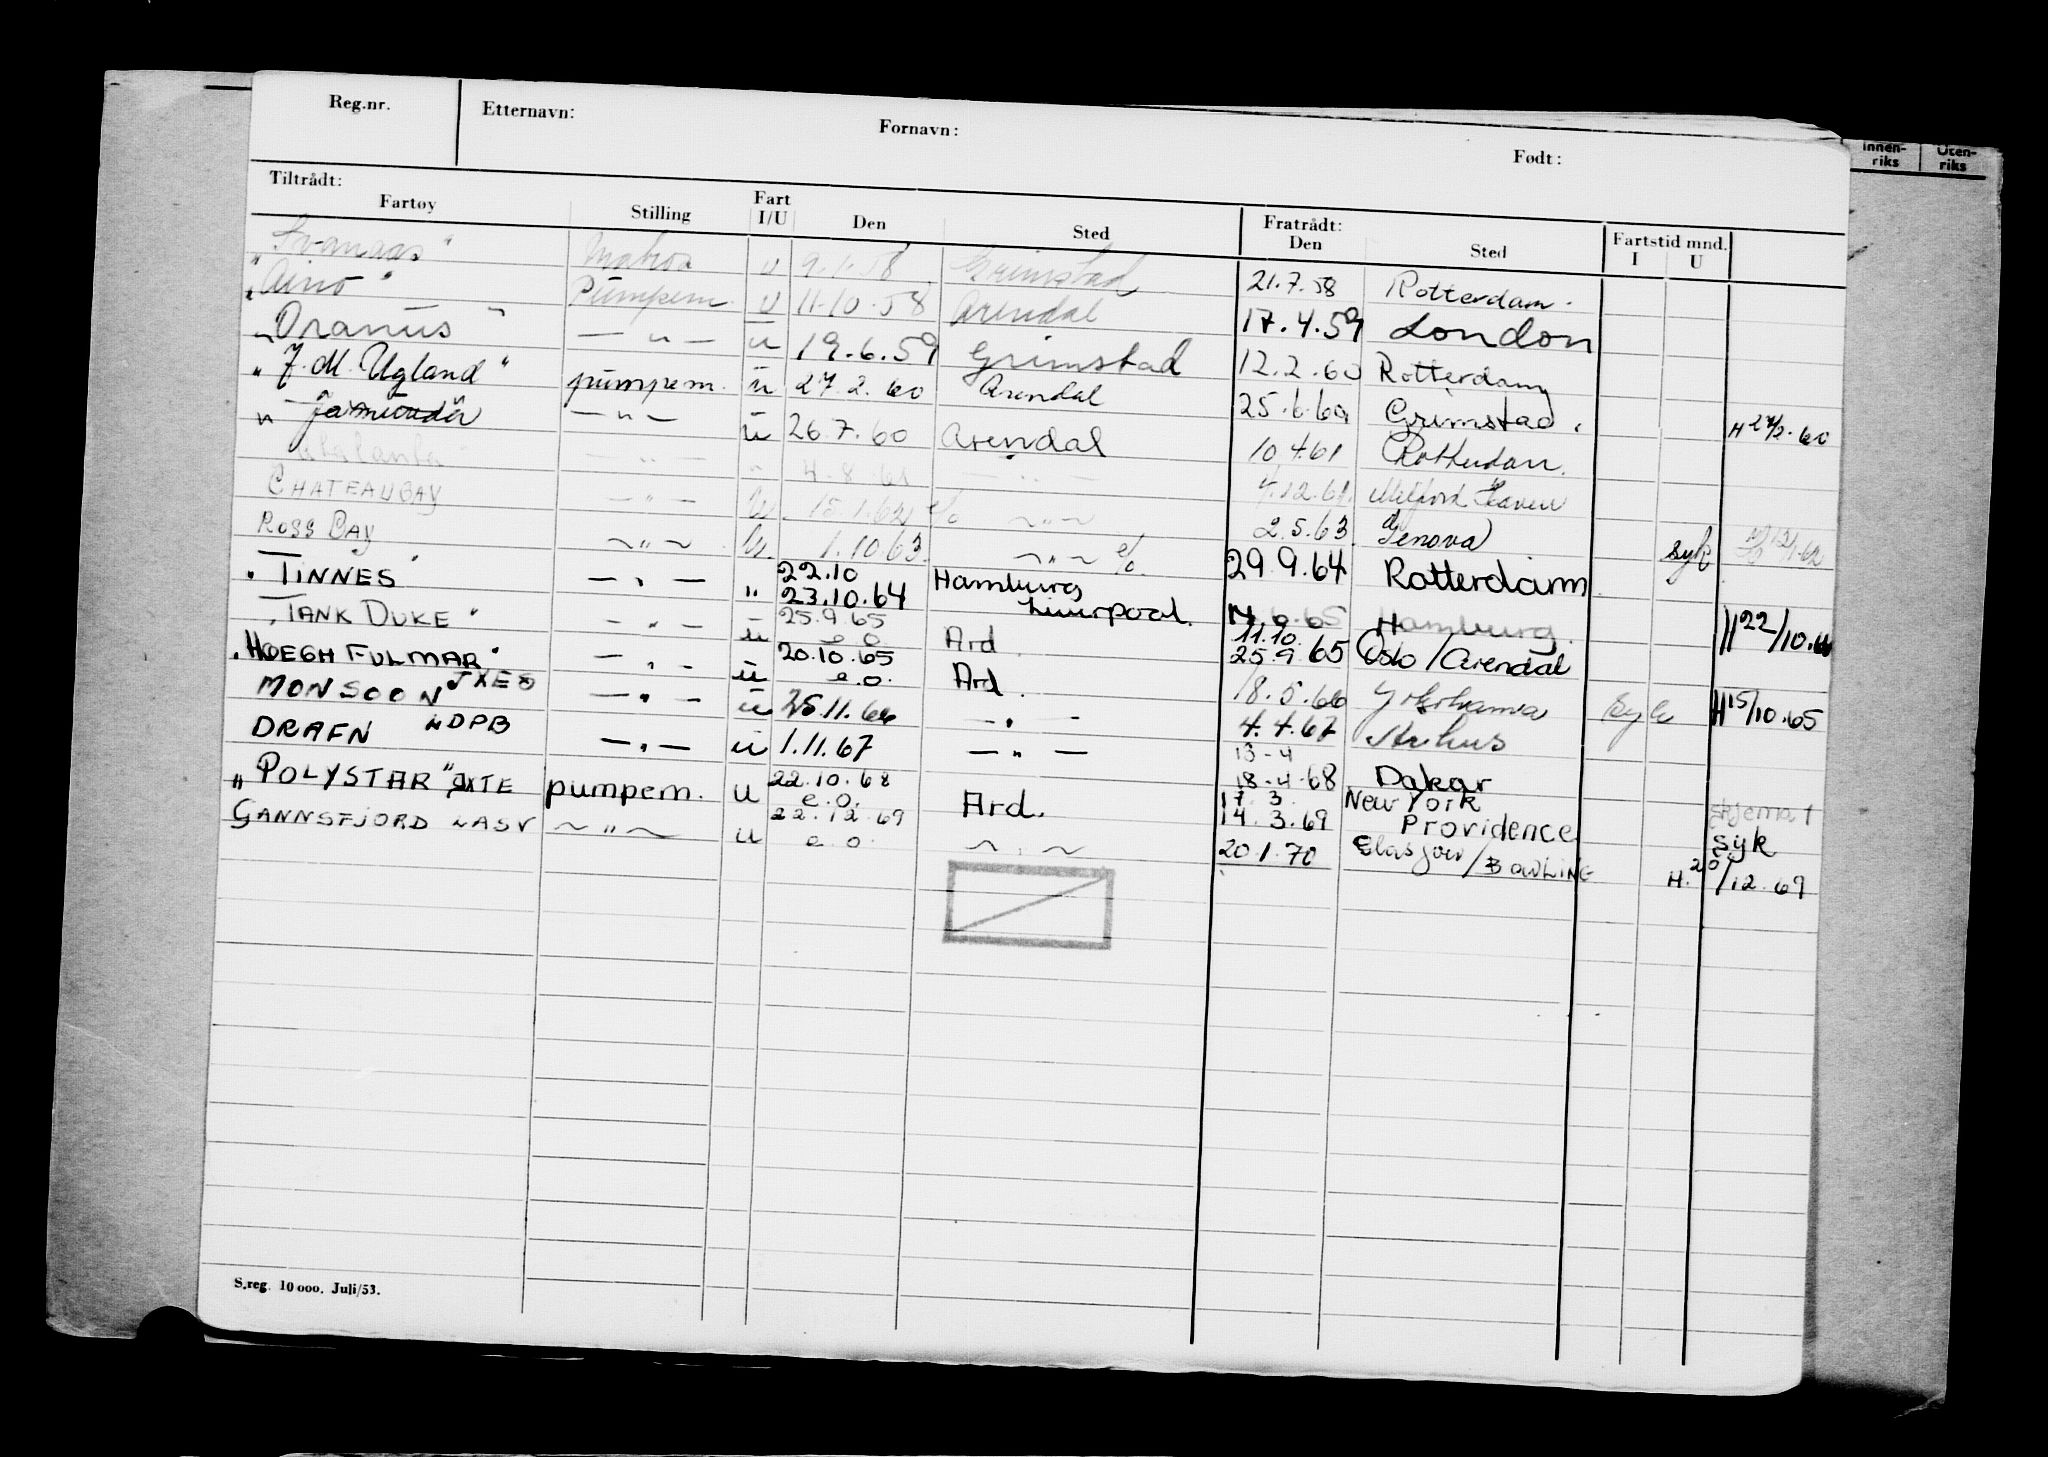 Reg.nr. Etternavn: Fornavn: Født:
Innen-riks Uten-riks
Tiltrådt: Fratrådt: Fartstid mnd.
Fartøy Stilling Fart I/U Den Sted Den Sted I U
Svanaas" Matros u 9.1.58 Grimstad 21.7.58 Rotterdam.
"Aino" Pumpem. u 11.10.58 Arendal 17.4.59 London
"Oranus" — " — u 19.6.59 Grimstad 12.2.60 Rotterdam
"J.M. Ugland" pumpem. u 27.2.60 Arendal 25.6.60 Grimstad. H 27/2.60
" — " — u 26.7.60 Arendal 10.4.61 Rotterdam.
Atalanta — " — " 4.8.61 — " — 7.12.61. Milford Haven
CHATEAUGAY — " — u. 15.1.62 e/o ~ " ~ 2.5.63 Genova syk
ROSS BAY ~ " ~ u. 1.10.63. ~ " ~ e/o. 29.9.64 Rotterdam
"TINNES" — " — " 22.10 23.10.64 Hamburg Liverpool. Hamburg. H 22/10.64
"TANK DUKE" — " — u 25.9.65 e.o. Ard. 11.10. 25.9.65 Oslo/Arendal
"HOEGH FULMAR" — " — u 20.10.65 e.o. Ard. 18.5.66 Yokohama Syk H 15/10.65
MONSOON — " — u 25.11.66 — " — 4.4.67 Aarhus
DRAFN LDPB — " — u 1.11.67 — " — 13-4 18-4-68 Dakar
"POLYSTAR" JXTE pumpem. u 22.10.68 e.o. Ard. 17.3. 14.3.69 New York Providence skjema 1 syk
GANNSFJORD LASV ~ " ~ u 22.12.69 e.o. ~ " ~ 20.1.70 Glasgow/BOWLING H. 20/12.69
S.reg. 10 000. Juli/53.